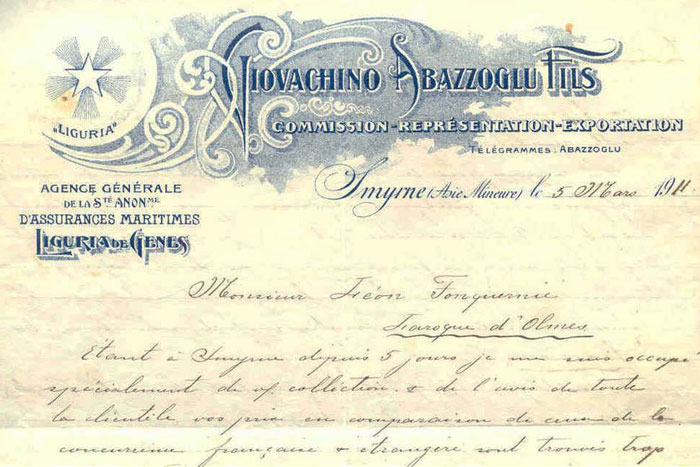 GIOVACHINO ABAZZOGLU FILS
COMMISSION-REPRÉSENTATION-EXPORTATION
TÉLÉGRAMMES: ABAZZOGLU
"LIGURIA"
AGENCE GÉNÉRALE
DE LA STÉ ANONME
D'ASSURANCES MARITIMES
LIGURIA DE GÊNES
Smyrne (Asie Mineure) le 5 Mars 1911
Monsieur Léon Fonquernie
Laroque d'Olmes
Etant à Smyrne depuis 5 jours je me suis occupé
spécialement de vf collection & de l'avis de toute
la clientèle vos prix en comparaison de ceux de la
concurrence française & étrangère sont trouvés trop